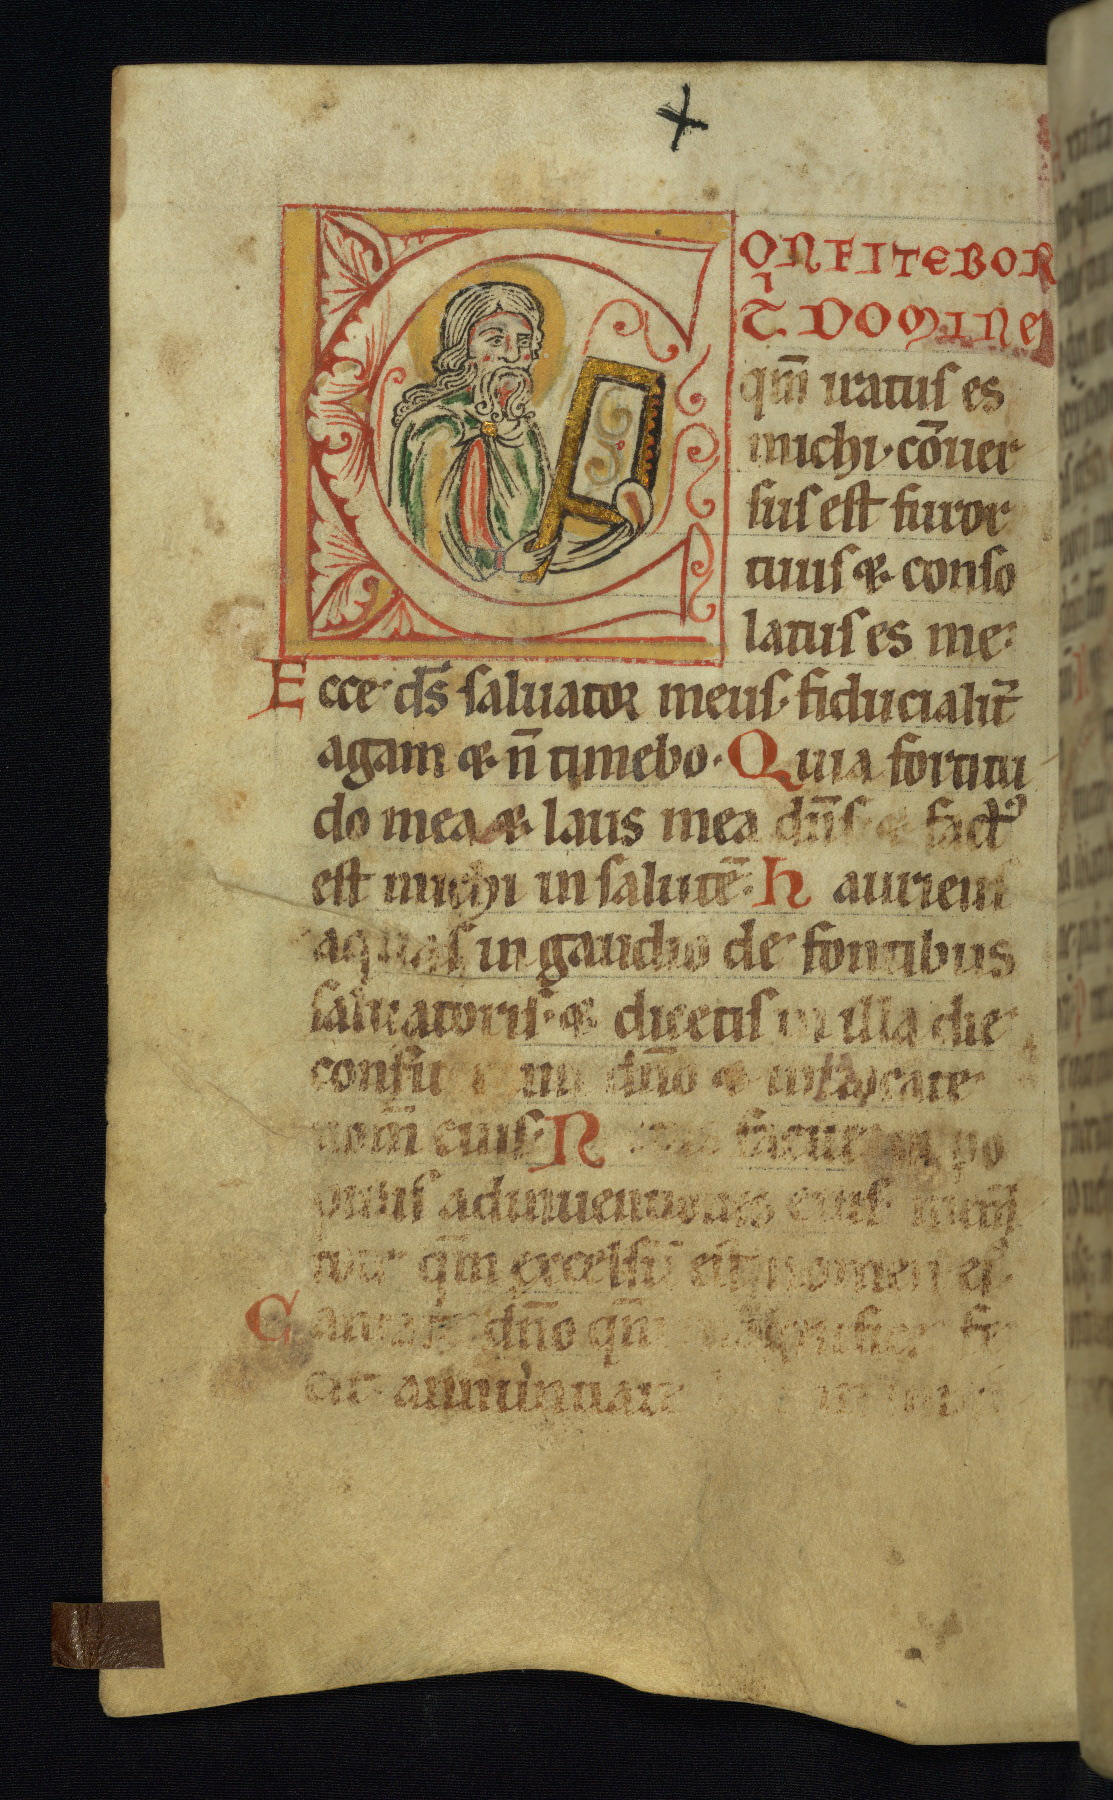 CONFITEBOR
TI DOMINE
qm̄ iratus es
michi· cōuer
sus est furor
tuus & conso
latus es me·
Ecce ds̄ saluator meus· fiducialit̄
agam & n̄ timebo· Quia fortitu
do mea & laus mea dn̄s & fact᷒
est michi in salutē· haurietis
aquas in gaudio de fontibus
saluatoris· & dicetis in illa die
confitemini dn̄o & inuocate
nom̄ eius· N facite in po
pulis adinuentiones eius
qm̄ excelsū est nomen ei᷒
Cantate dn̄o qm̄ magnifice fe
cit annuntiate